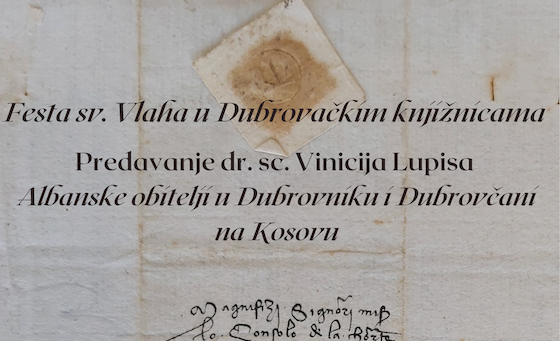 Festa sv. Vlaha u Dubrovačkim knjižnicama
Predavanje dr. sc. Vinicija Lupisa
Albanske obitelji u Dubrovniku i Dubrovčani
na Kosovu
Magnifizi Signori miser
lo Consolo de la